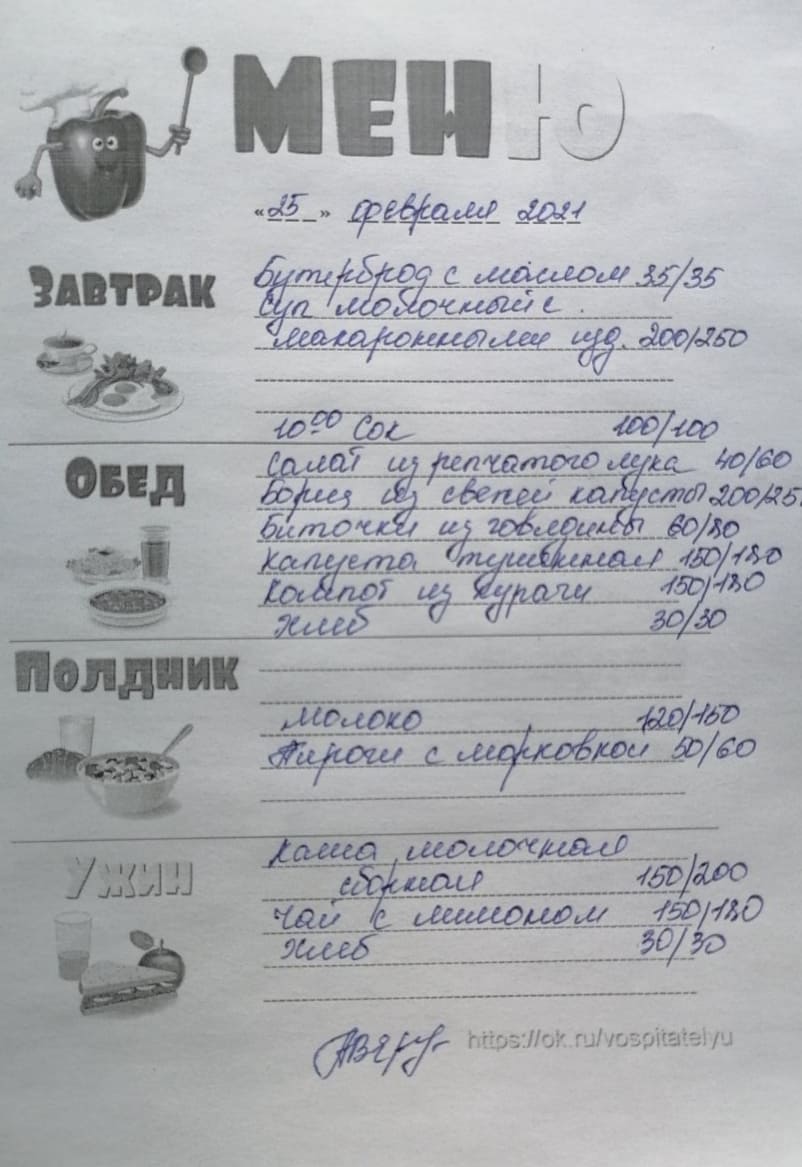 МЕНЮ
«25» февраля 2021
ЗАВТРАК
Бутерброд с маслом 35/35
Суп молочный с
макаронными изд. 200/250
10⁰⁰ Сок 100/100
ОБЕД
Салат из репчатого лука 40/60
Борщ из свежей капусты 200/25
Биточки из говядины 60/80
Капуста тушенная 150/180
Компот из кураги 150/180
Хлеб 30/30
ПОЛДНИК
Молоко 120/150
Пироги с морковкой 50/60
УЖИН
Каша молочная
сборная 150/200
Чай с лимоном 150/180
Хлеб 30/30
https://ok.ru/vospitatelyu